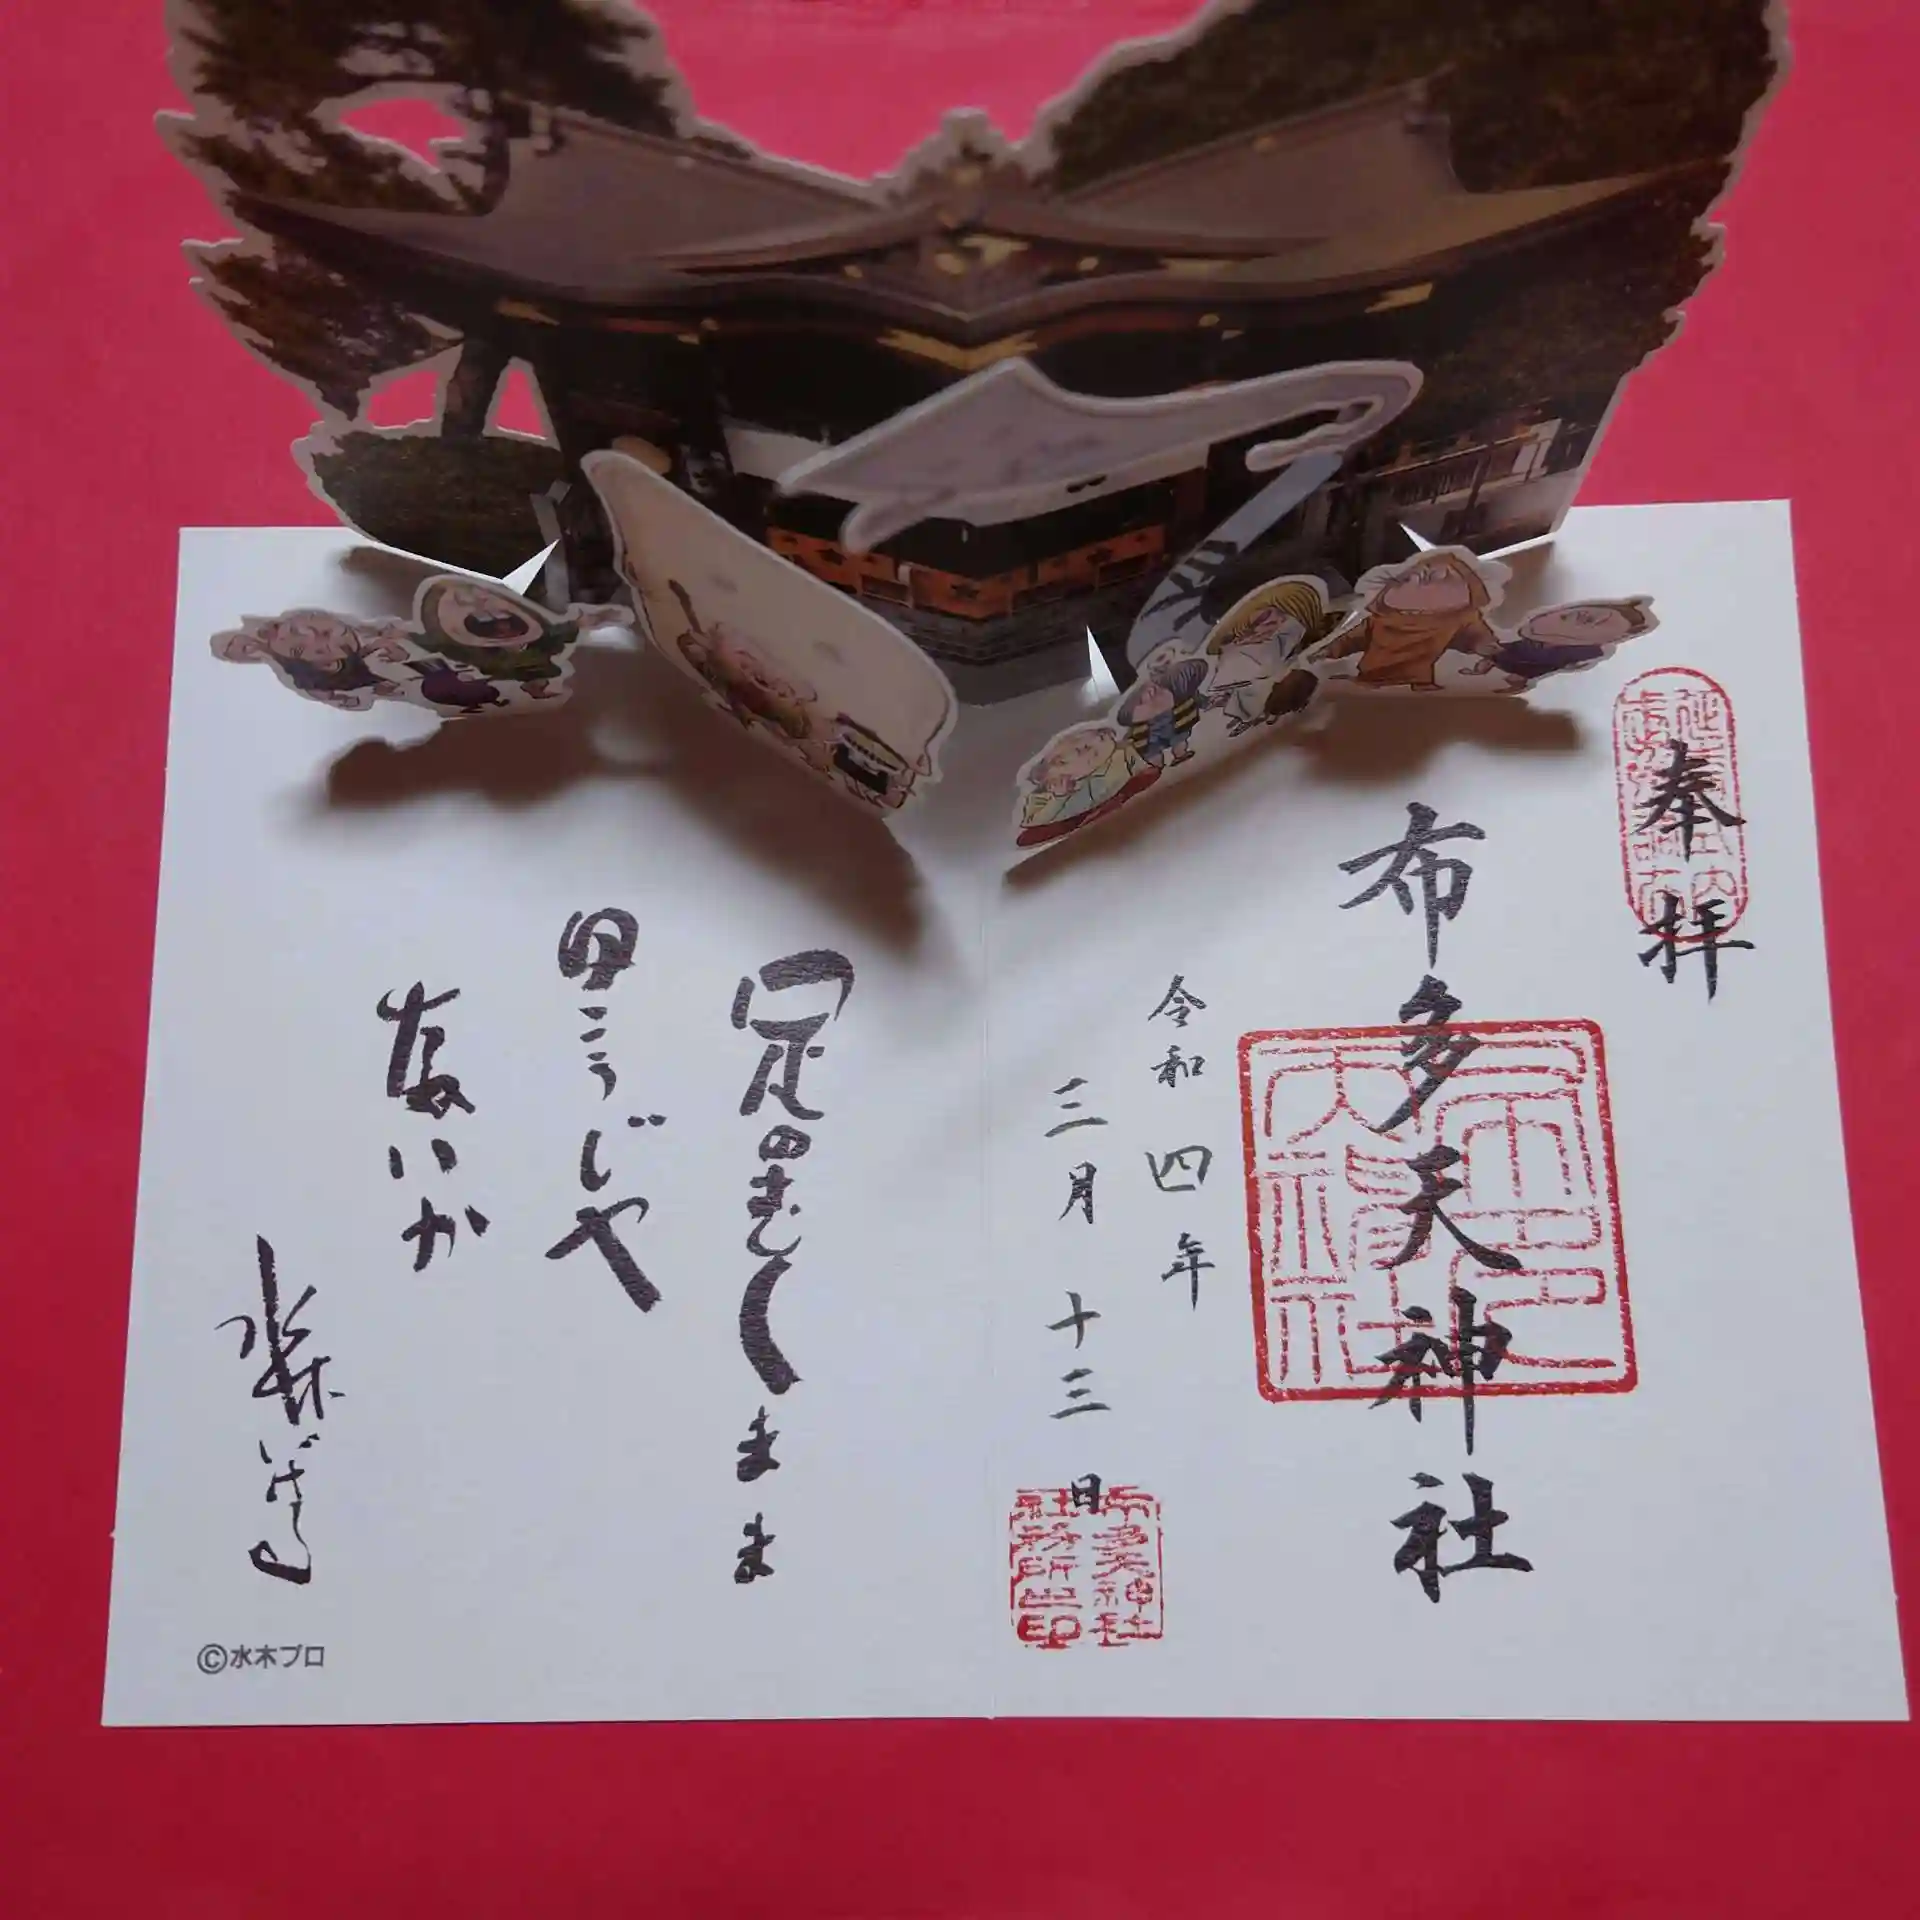 奉拝
布多天神社
令和四年
三月十三日
布多天神社
社務所之印
足のむくまま
こうじゃ
ないか
水木しげる
©水木プロ